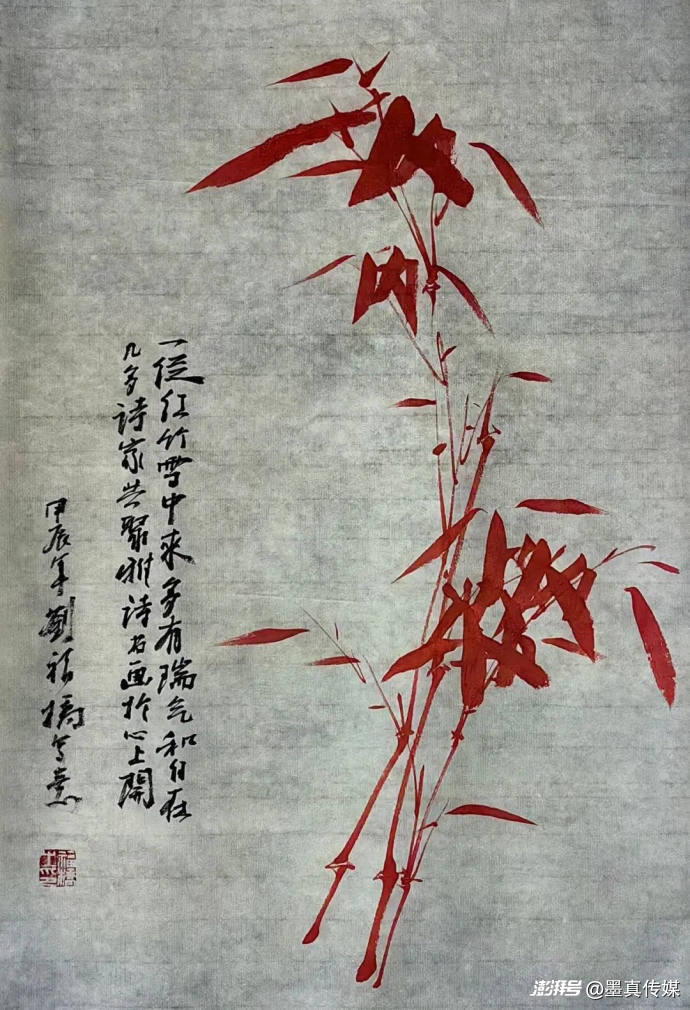 一從红竹雪中來多有瑞气和自在
几多诗家共聚雅诗名画於心上開
甲辰年劉福橋写意
澎湃号 @墨真传媒